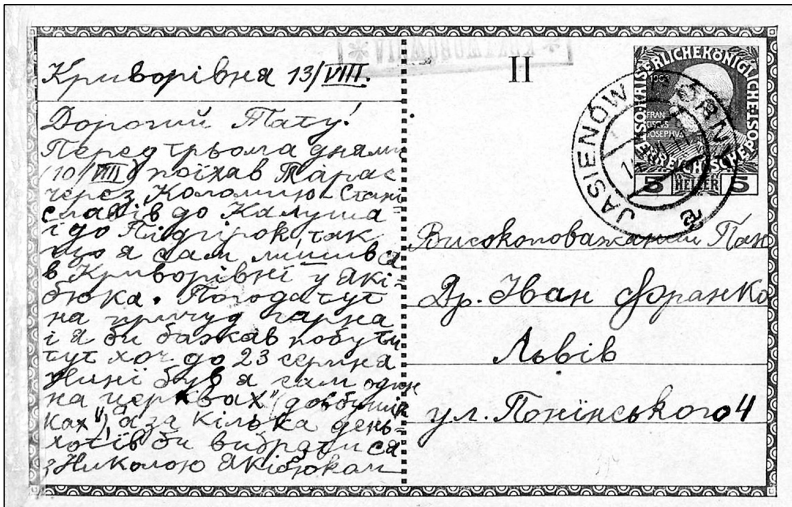 Криворівня 13/VIII.
Дорогий Тату!
Перед трьома днями
(10/VIII) поїхав Тарас
через Коломию-Стані-
славів до Калуша
і до Підгірок, так
що я сам лишився
в Криворівні у Які-
бюка. Погода тут
на причуд гарна
і я би бажав побути
тут хоч до 23 серпня
Нині був я сам один
на „церквах" (довбушів
ках"), а за кілька день
хотів би вибратися
з Николою Якібюком
II
KAISERLICHE KÖNIGLICHE
ÖSTERREICHISCHE POST
5 HELLER 5
JASIENÓW GÓRNY
Високоповажаний Пан
Др. Іван Франко
Львів
ул. Понїнського 4